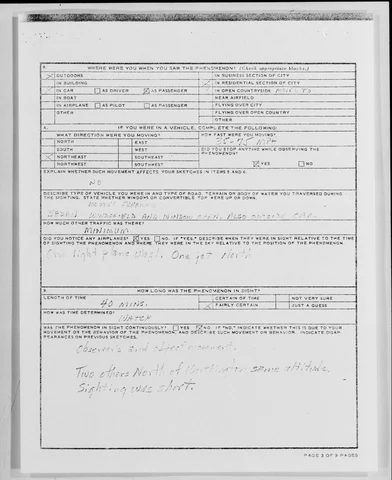 WHERE WERE YOU WHEN YOU SAW THE PHENOMENON? (Check appropriate blocks.)
OUTDOORS IN BUSINESS SECTION OF CITY
IN BUILDING IN RESIDENTIAL SECTION OF CITY
IN CAR AS DRIVER AS PASSENGER IN OPEN COUNTRYSIDE
IN BOAT NEAR AIRFIELD
IN AIRPLANE AS PILOT AS PASSENGER FLYING OVER CITY
OTHER FLYING OVER OPEN COUNTRY
OTHER
IF YOU WERE IN A VEHICLE, COMPLETE THE FOLLOWING:
WHAT DIRECTION WERE YOU MOVING? HOW FAST WERE YOU MOVING?
NORTH EAST MPH
SOUTH WEST DID YOU STOP ANYTIME WHILE OBSERVING THE PHENOMENON?
NORTHEAST SOUTHEAST YES NO
NORTHWEST SOUTHWEST
EXPLAIN WHETHER SUCH MOVEMENT AFFECTS YOUR SKETCHES IN ITEMS 5 AND 6.
NO
DESCRIBE TYPE OF VEHICLE YOU WERE IN AND TYPE OF ROAD, TERRAIN OR BODY OF WATER YOU TRAVERSED DURING
THE SIGHTING. STATE WHETHER WINDOWS OR CONVERTIBLE TOP WERE UP OR DOWN.
SEDAN WINDSHIELD AND WINDOW OPEN, ALSO OUTSIDE CAR
HOW MUCH OTHER TRAFFIC WAS THERE?
MINIMUM
DID YOU NOTICE ANY AIRPLANES? YES NO. IF "YES," DESCRIBE WHEN THEY WERE IN SIGHT RELATIVE TO THE TIME
OF SIGHTING THE PHENOMENON AND WHERE THEY WERE IN THE SKY RELATIVE TO THE POSITION OF THE PHENOMENON.
One light plane West. One jet North
HOW LONG WAS THE PHENOMENON IN SIGHT?
LENGTH OF TIME CERTAIN OF TIME NOT VERY SURE
40 MINS. FAIRLY CERTAIN JUST A GUESS
HOW WAS TIME DETERMINED?
WATCH
WAS THE PHENOMENON IN SIGHT CONTINUOUSLY? YES NO. IF "NO," INDICATE WHETHER THIS IS DUE TO YOUR
MOVEMENT OR THE BEHAVIOR OF THE PHENOMENON, AND DESCRIBE SUCH MOVEMENT OR BEHAVIOR. INDICATE DISAP-
PEARANCES ON PREVIOUS SKETCHES.
Observers and object movement.
Two others North of same altitude.
Sighting was short.
PAGE 3 OF PAGES